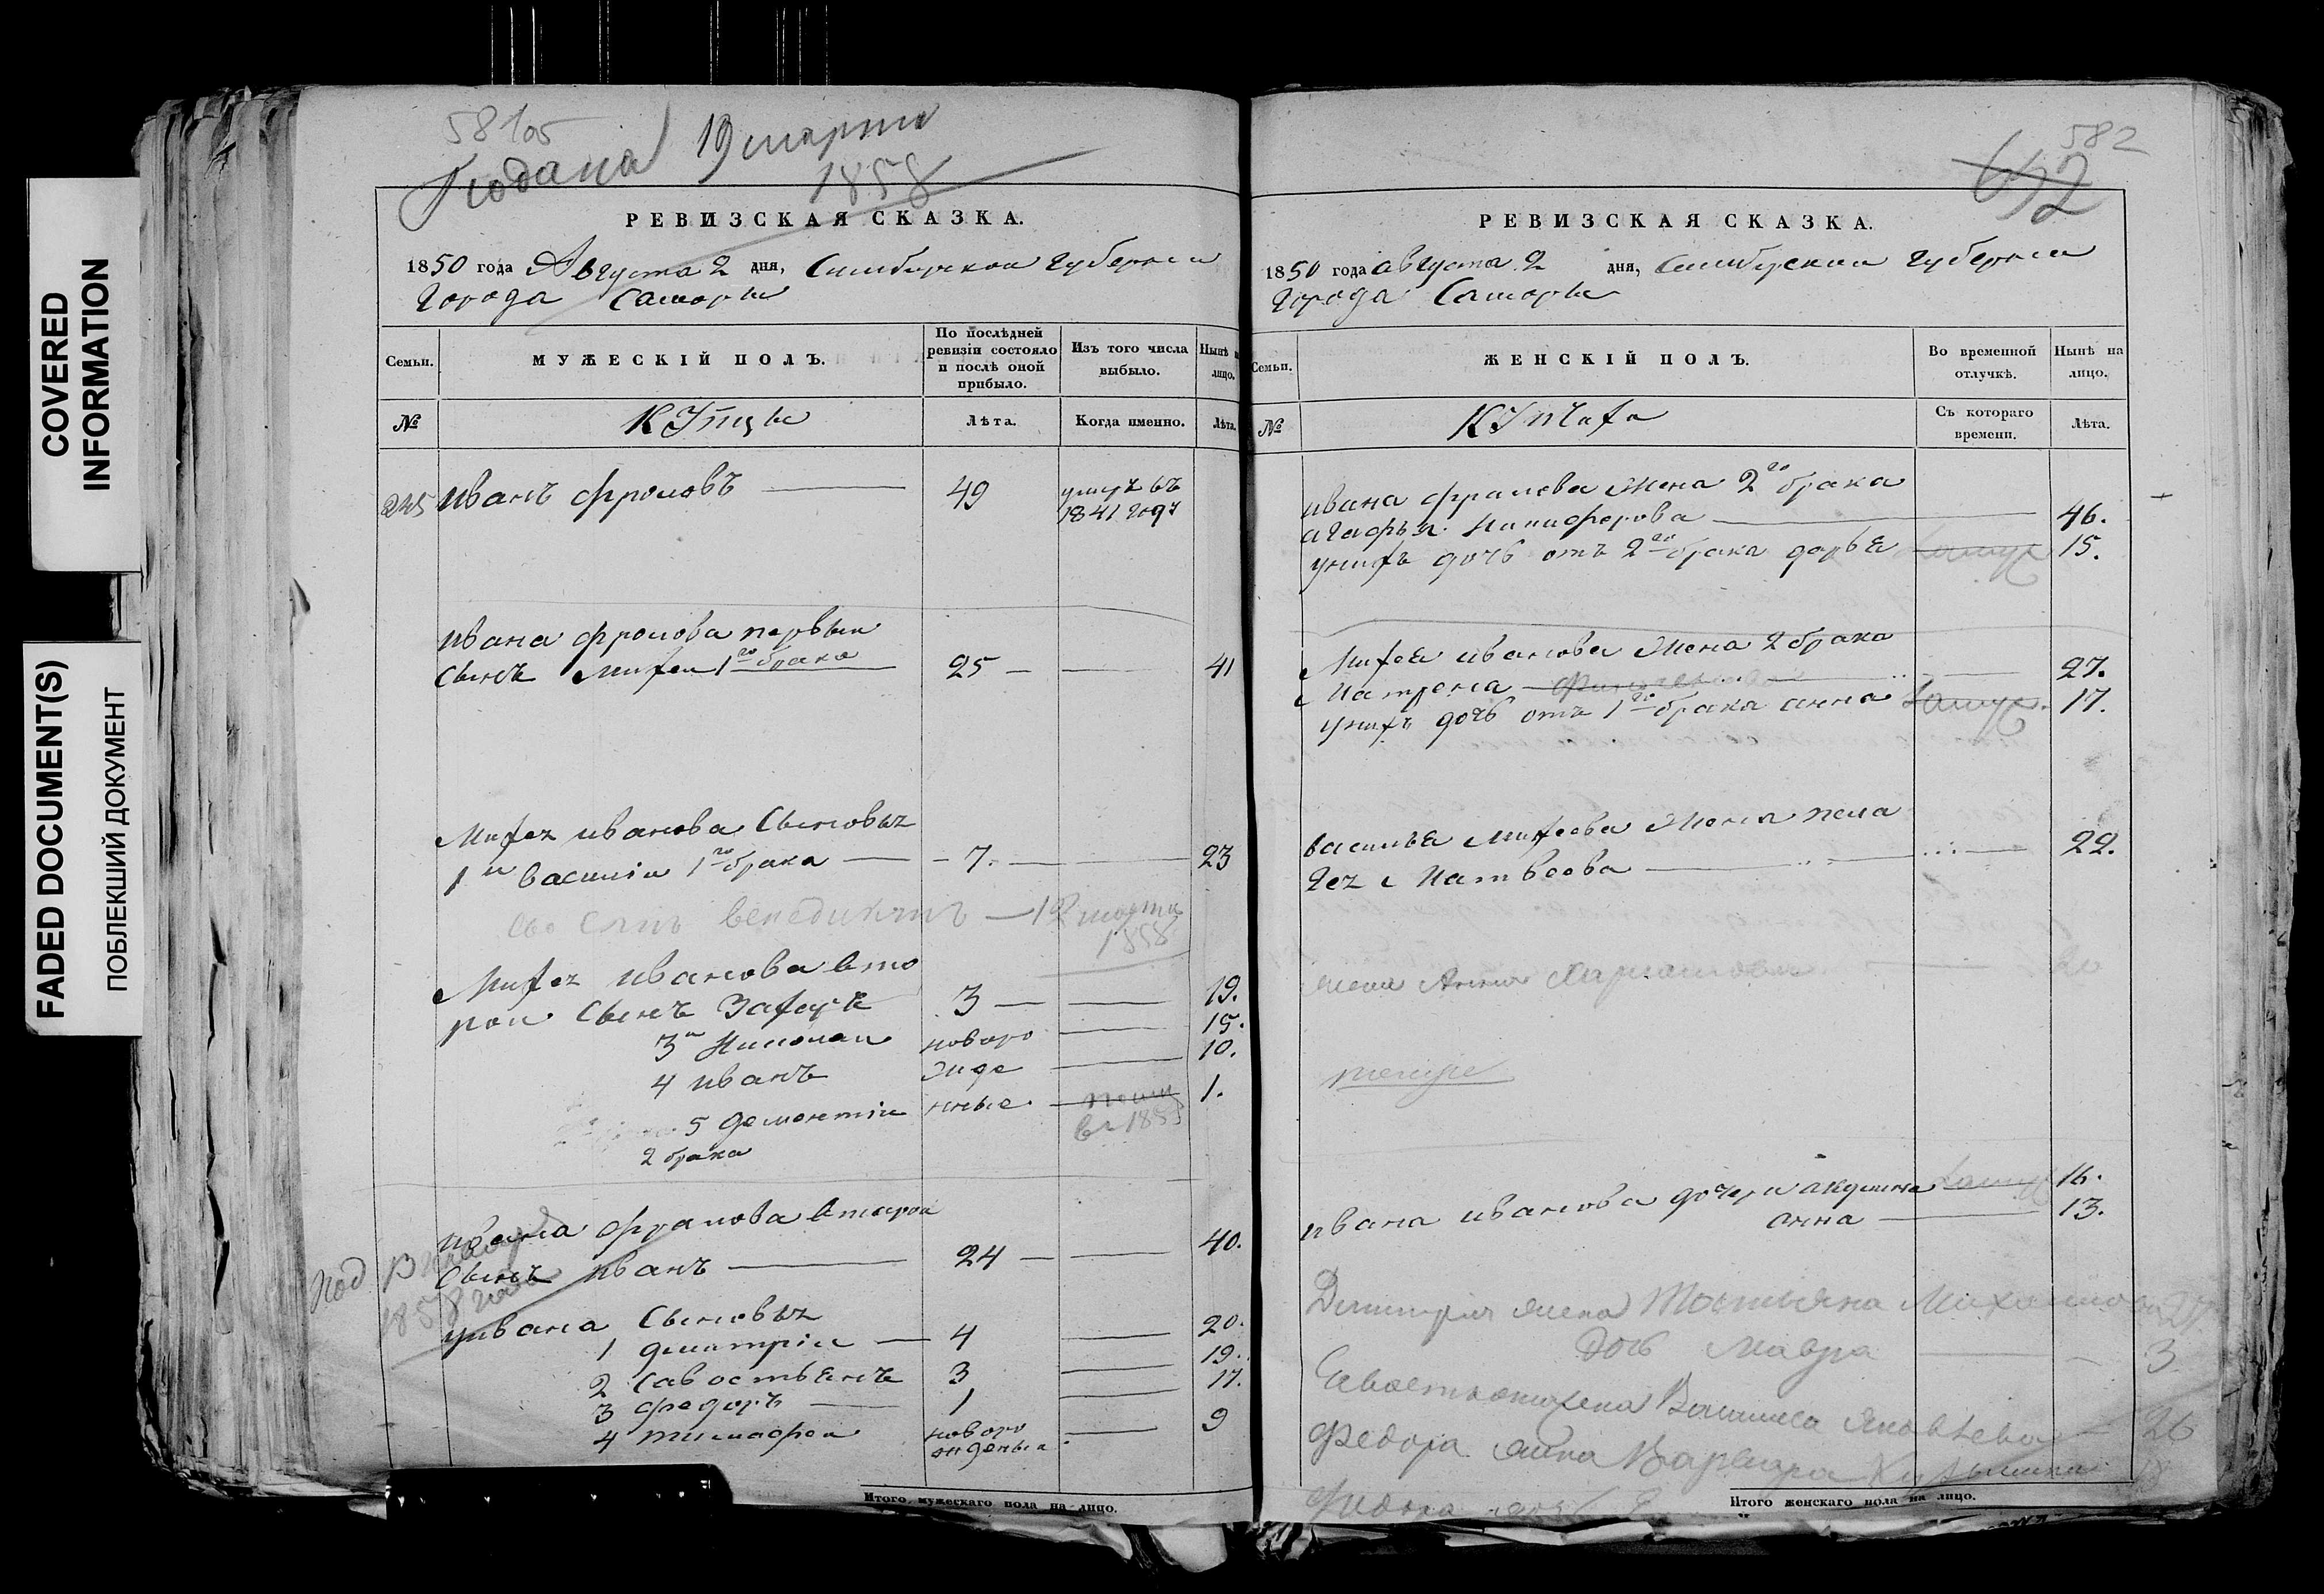 COVERED
INFORMATION
FADED DOCUMENT(S)
ПОБЛЕКШИЙ ДОКУМЕНТ
581об
Подана 19 марта
1858
РЕВИЗСКАЯ СКАЗКА.
1850 года Августа 2 дня, Симбирской губернии
города Самары
Семьи.
МУЖЕСКІЙ ПОЛЪ.
По послѣдней
ревизіи состояло
и послѣ оной
прибыло.
Изъ того числа
выбыло.
Нынѣ
лицо.
№
Купцы
Лѣта.
Когда именно.
Лѣта.
245 Иванъ фроловъ 49 умръ въ
1841 году
Ивана фролова первый
сынъ Михей 1го брака 25 41
Михея иванова Сыновья
1й василій 1го брака 7. 23
сынъ венедиктъ 12 марта
1858
Михея Иванова вто
рой Сынъ Захаръ 3 19.
3й Николай новоро 15.
4 иванъ жде 10.
5 дементій нные. 1.
в 185
2 брака
Ивана фролова второй
Сынъ иванъ 24 40.
Под
1858 года
уивана Сыновья
1 дмитрій 4 20.
2 Савостьянъ 3 19.
3 федоръ 1 17.
4 тимофей новоро 9
жденый.
Итого мужескаго пола на лицо.
582
РЕВИЗСКАЯ СКАЗКА.
1850 года августа 2 дня, Симбирской губернии
города Самары
Семьи.
ЖЕНСКІЙ ПОЛЪ.
Во временной
отлучкѣ.
Нынѣ на
лицо.
№
Купчиха
Съ котораго
времени.
Лѣта.
ивана фролова жена 2го брака
агафья Никифорова 46.
унихъ дочь отъ 2го брака дарья замуж 15.
Михея иванова жена 2 брака
Матрена 27.
унихъ дочь отъ 1го брака анна замуж. 17.
василья Михеева жена пела
гея Матвеева 22.
жена Анна
ивана иванова дочери акулина замуж 16.
анна 13.
Димитрия жена Татьяна Михайлова 27
дочь Мавра 3
Савостьяна жена Яковлева 26
Федора жена Варвара 18
Федора
Итого женскаго пола на лицо.